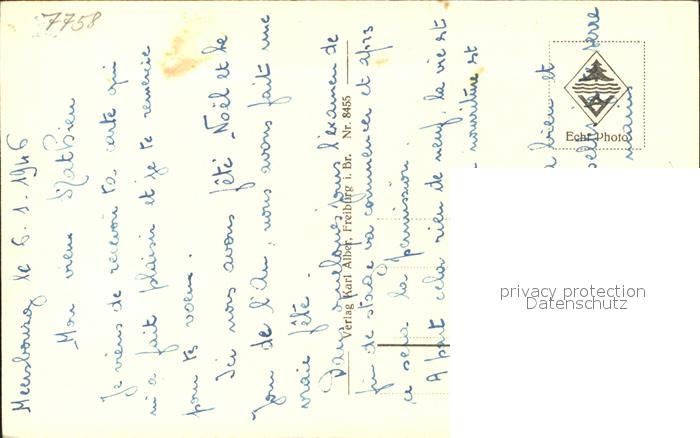 7758
Meersbourg le 6.1.1946
Mon vieux Mathieu
Je viens de recevoir ta carte qui
m'a fait plaisir et je te remercie
pour tes voeux.
Ici nous avons fêté Noël et le
Jour de l'An, nous avons fait une
vraie fête.
Dans quelques jours l'examen de
fin de stage va commencer et après
ce sera la permission.
A part cela rien de neuf, la vie est
nourriture est
bien et
terre
mains
Verlag Karl Alber, Freiburg i. Br. Nr. 8455
Echt Photo
privacy protection
Datenschutz